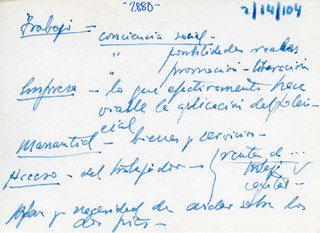 -2880-
2/14/104
Trabajo - conciencia social -
" posibilidades reales
" promoción - liberación
Empresa - lo que efectivamente hace
viable la aplicación del
cial -
Manantial - bienes y servicios -
Acceso - del trabajador - rentas de ...
trabajo ✓
capital -
Afan y necesidad de andar sobre los
dos pies -